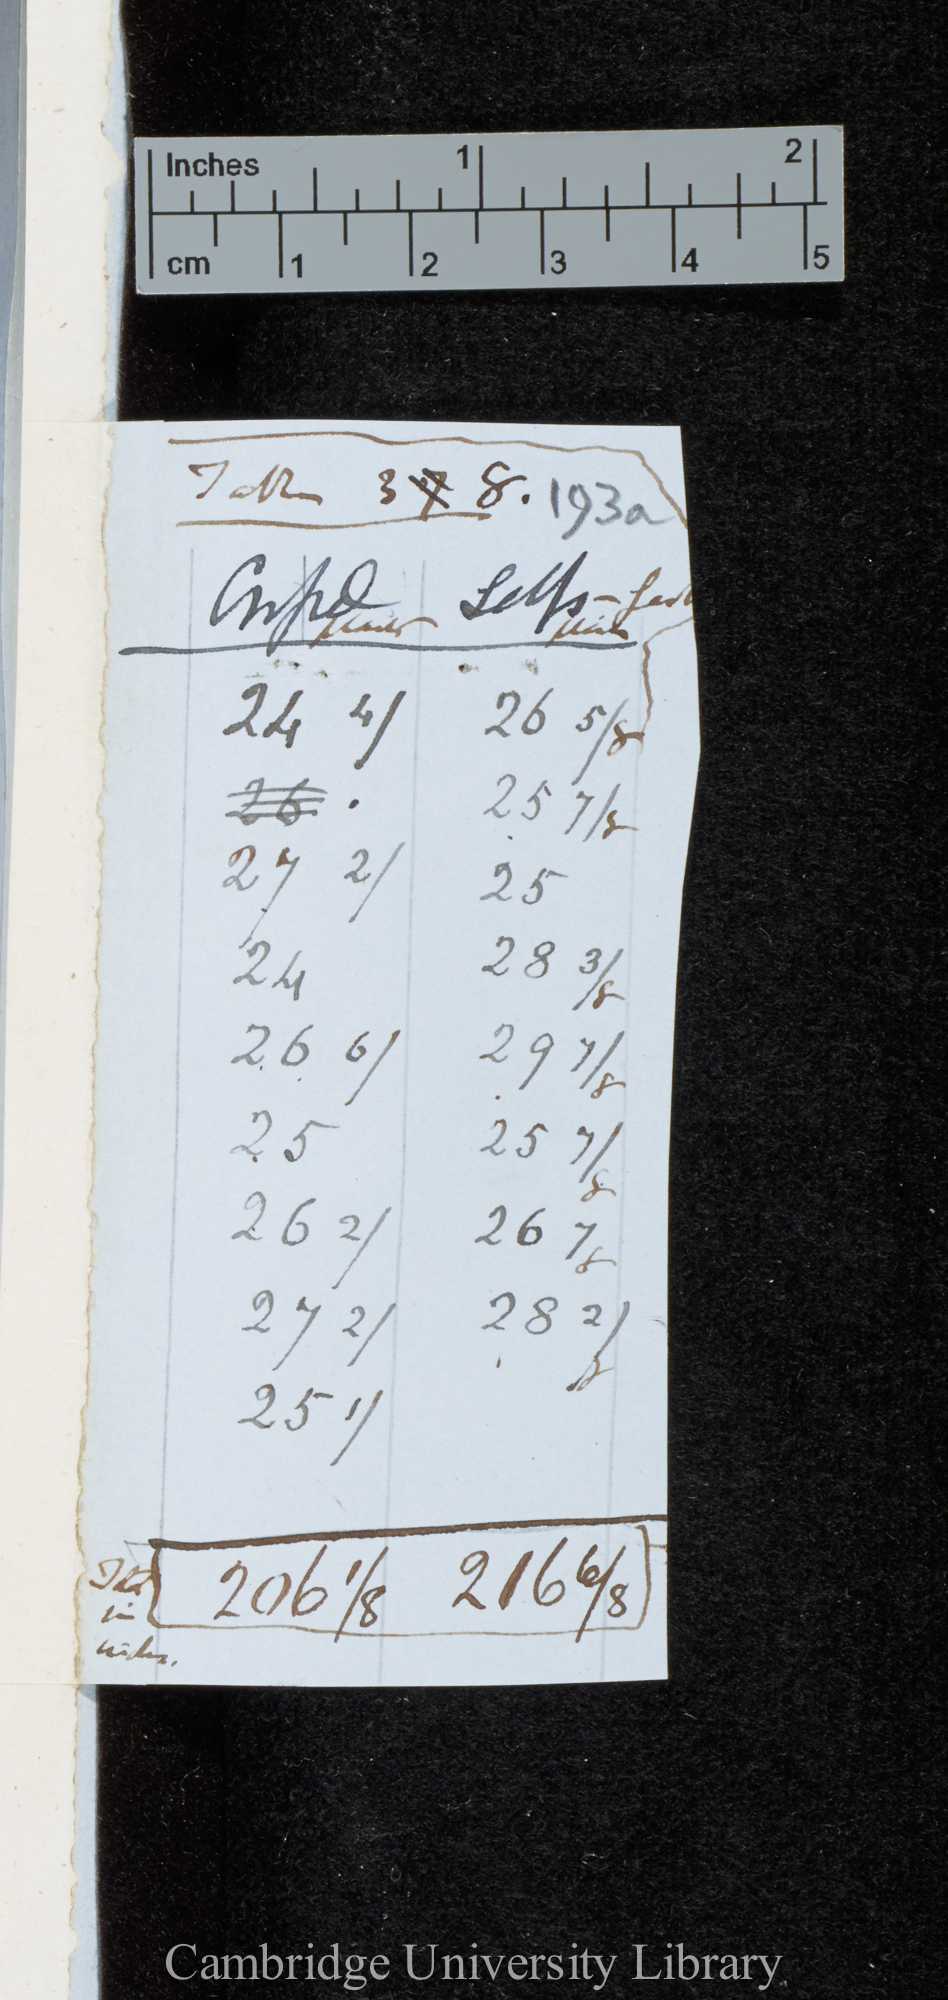 Inches 1 2
cm 1 2 3 4 5
Table 3 8. 193a
Crossed Selfs -
24 4/ 26 5/8
26 . 25 7/8
27 2/ 25
24 28 3/8
26 6/ 29 7/8
25 25 7/8
26 2/ 26 7/8
27 2/ 28 2/8
25 1/
206 1/8 216 6/8
in
inches.
Cambridge University Library